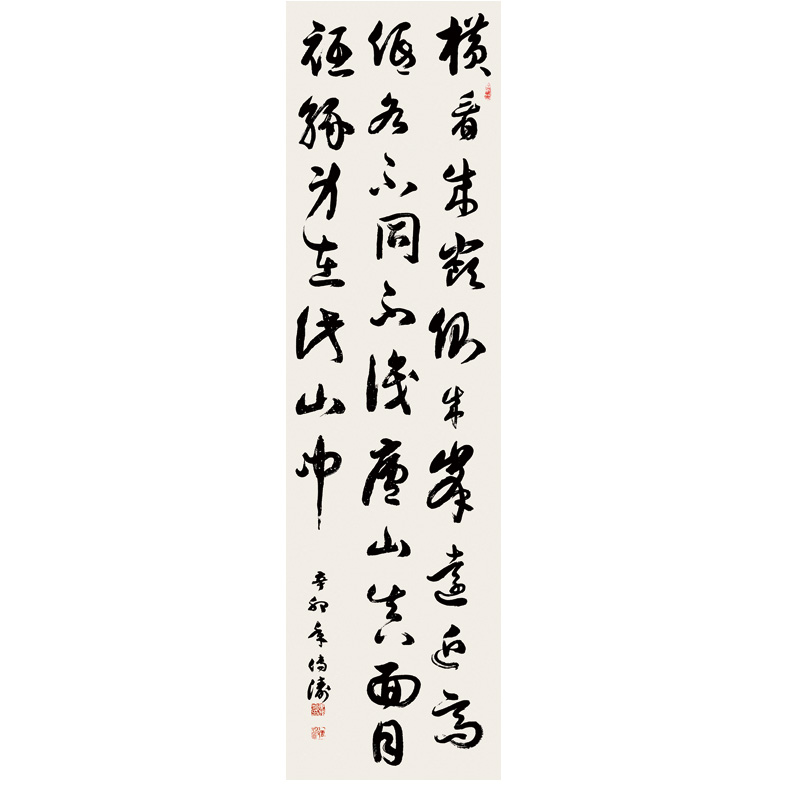 橫看成嶺側成峯遠近高
低各不同不識廬山真面目
祗緣身在此山中
辛卯年濤